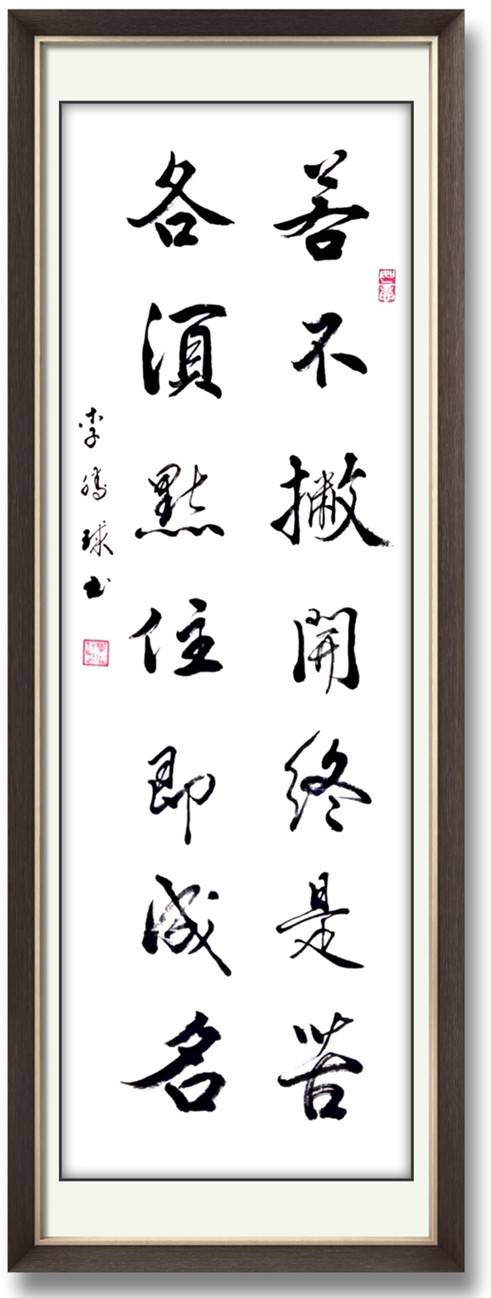 若不撇開終是苦
各須點住即成名
李騰球书